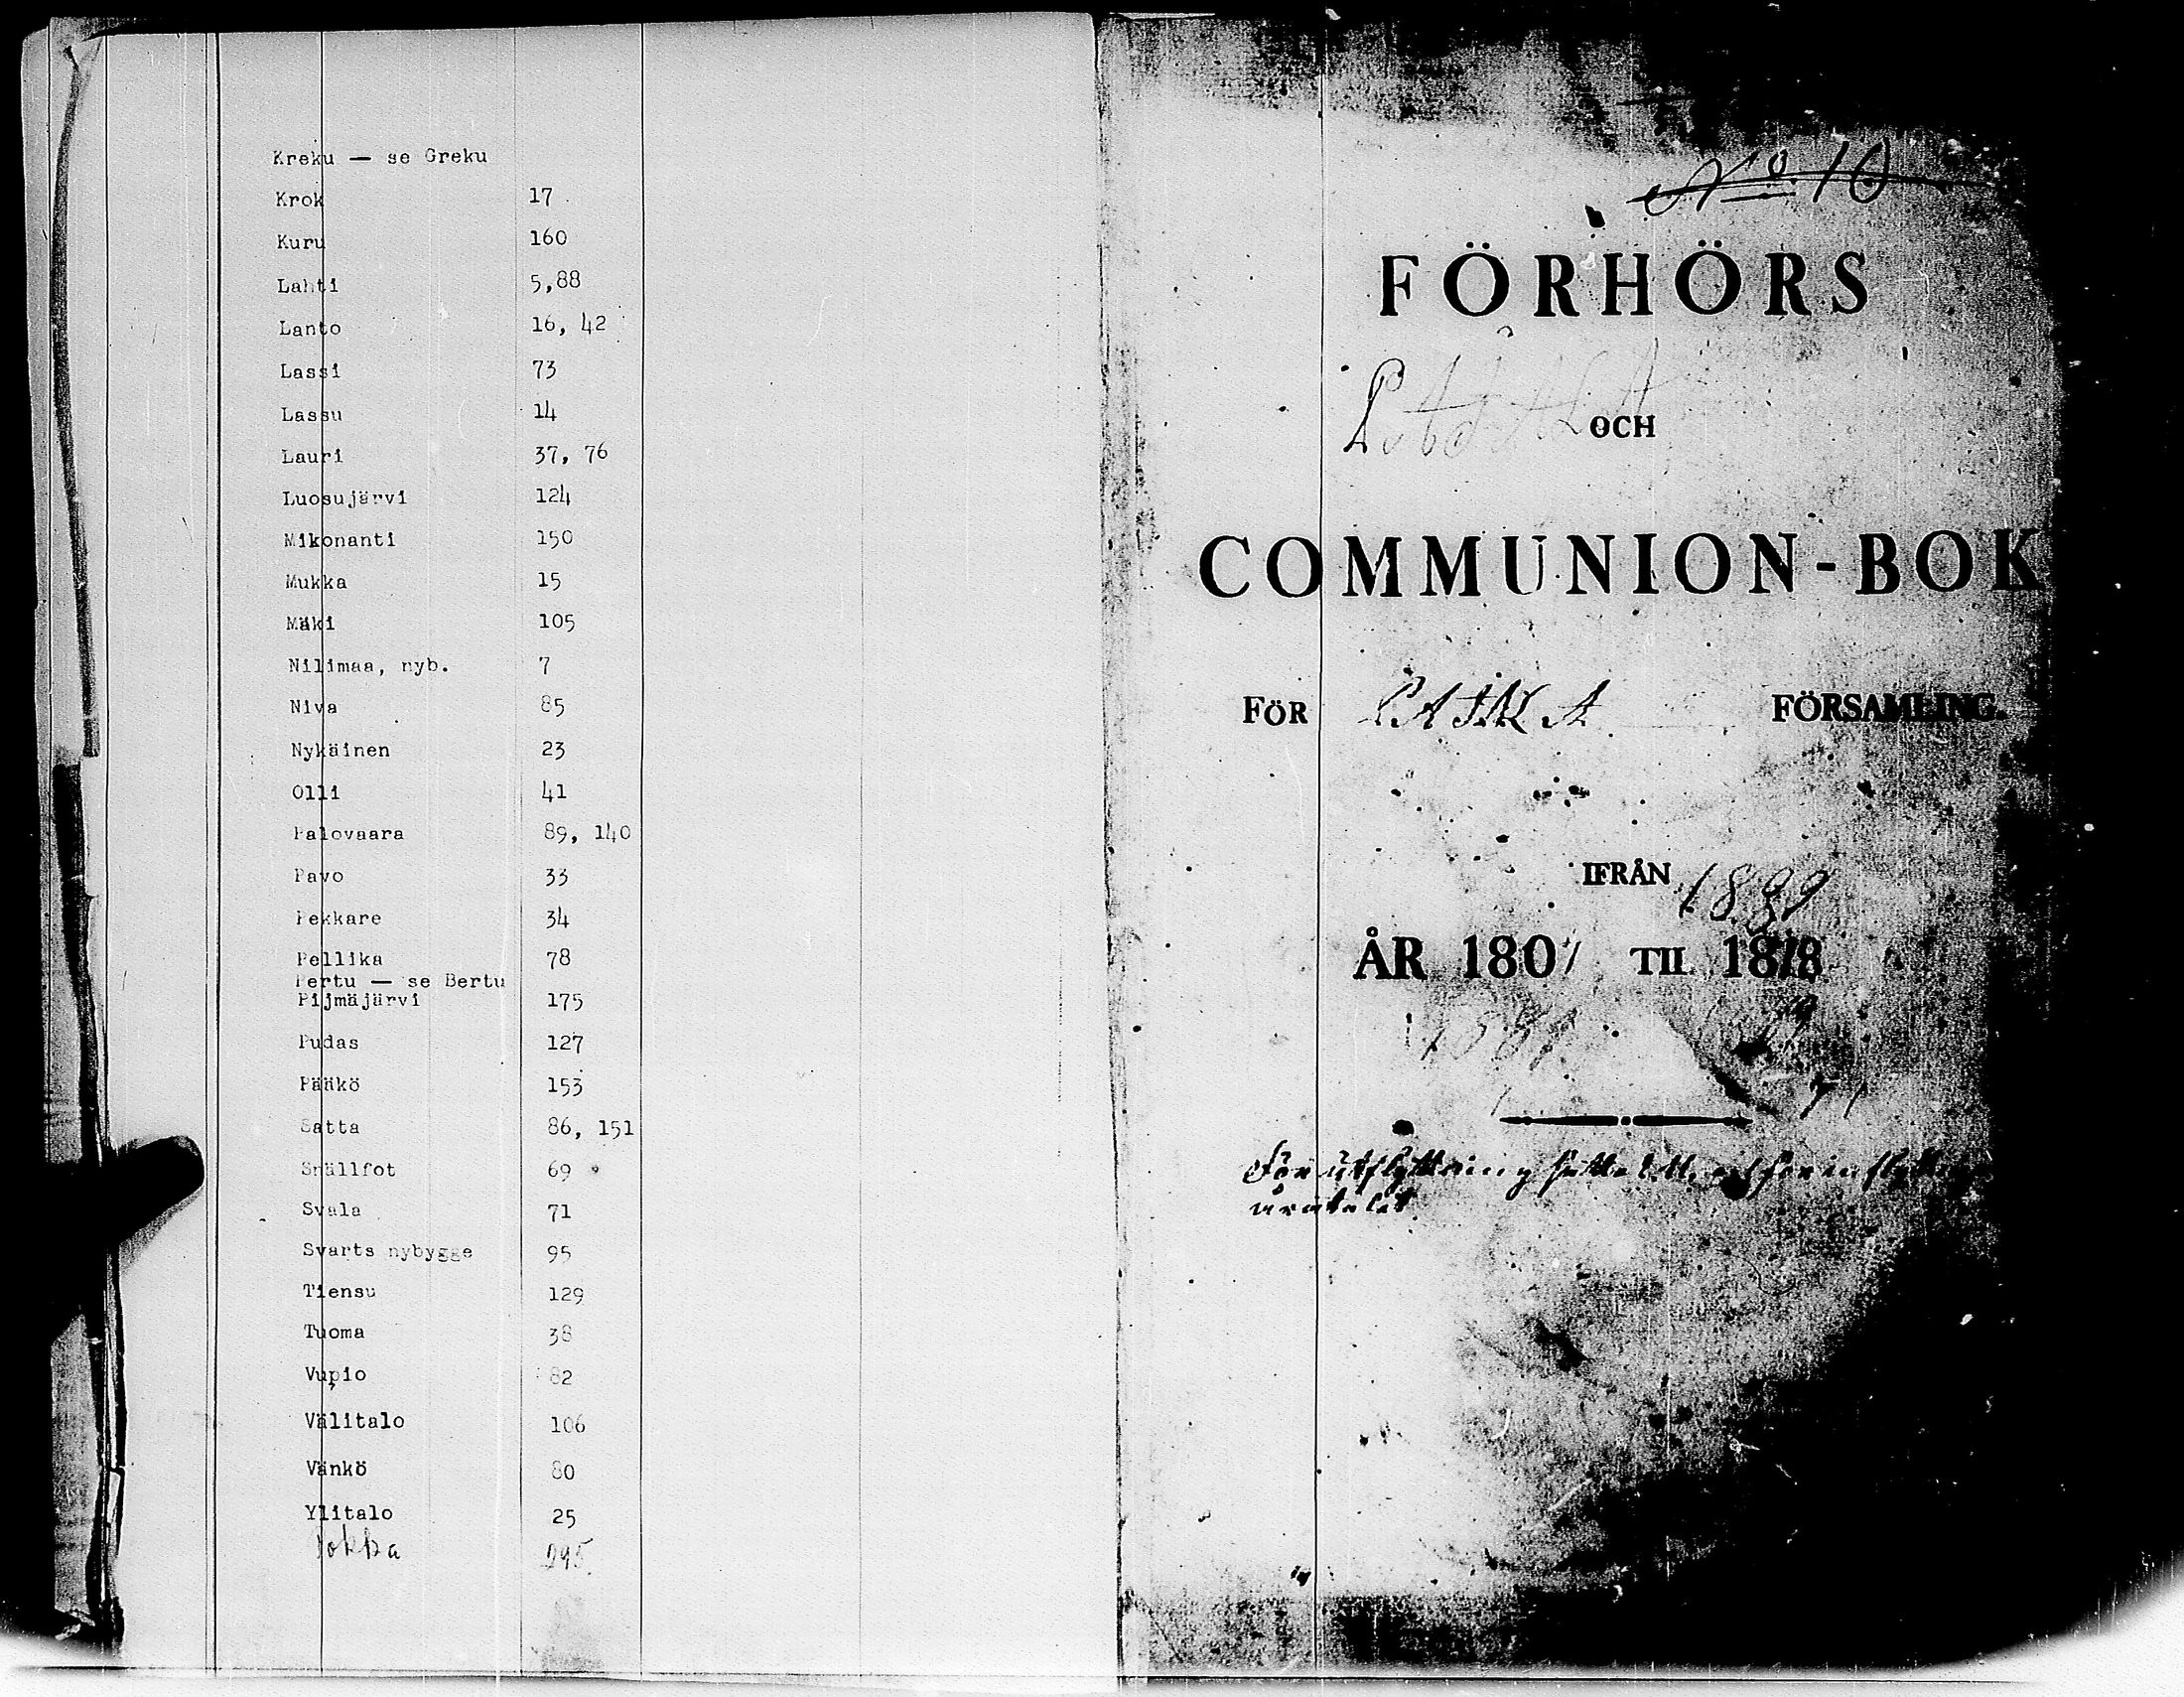 Kreku — se Greku
Krok 17
Kuru 160
Lahti 5,88
Lanto 16, 42
Lassi 73
Lassu 14
Lauri 37, 76
Luosujärvi 124
Mikonanti 150
Mukka 15
Mäki 105
Nilimaa, nyb. 7
Niva 85
Nykäinen 23
Olli 41
Palovaara 89, 140
Pavo 33
Pekkare 34
Pellika 78
Pertu — se Bertu
Pijmäjärvi 175
Pudas 127
Pääkö 153
Satta 86, 151
Snällfot 69
Svala 71
Svarts nybygge 95
Tiensu 129
Tuoma 38
Vupio 82
Välitalo 106
Vänkö 80
Ylitalo 25
No 10
FÖRHÖRS
OCH
COMMUNION-BOK
FÖR PAJALA FÖRSAMLING.
IFRÅN
ÅR 180 TIL 18
För utflyttning